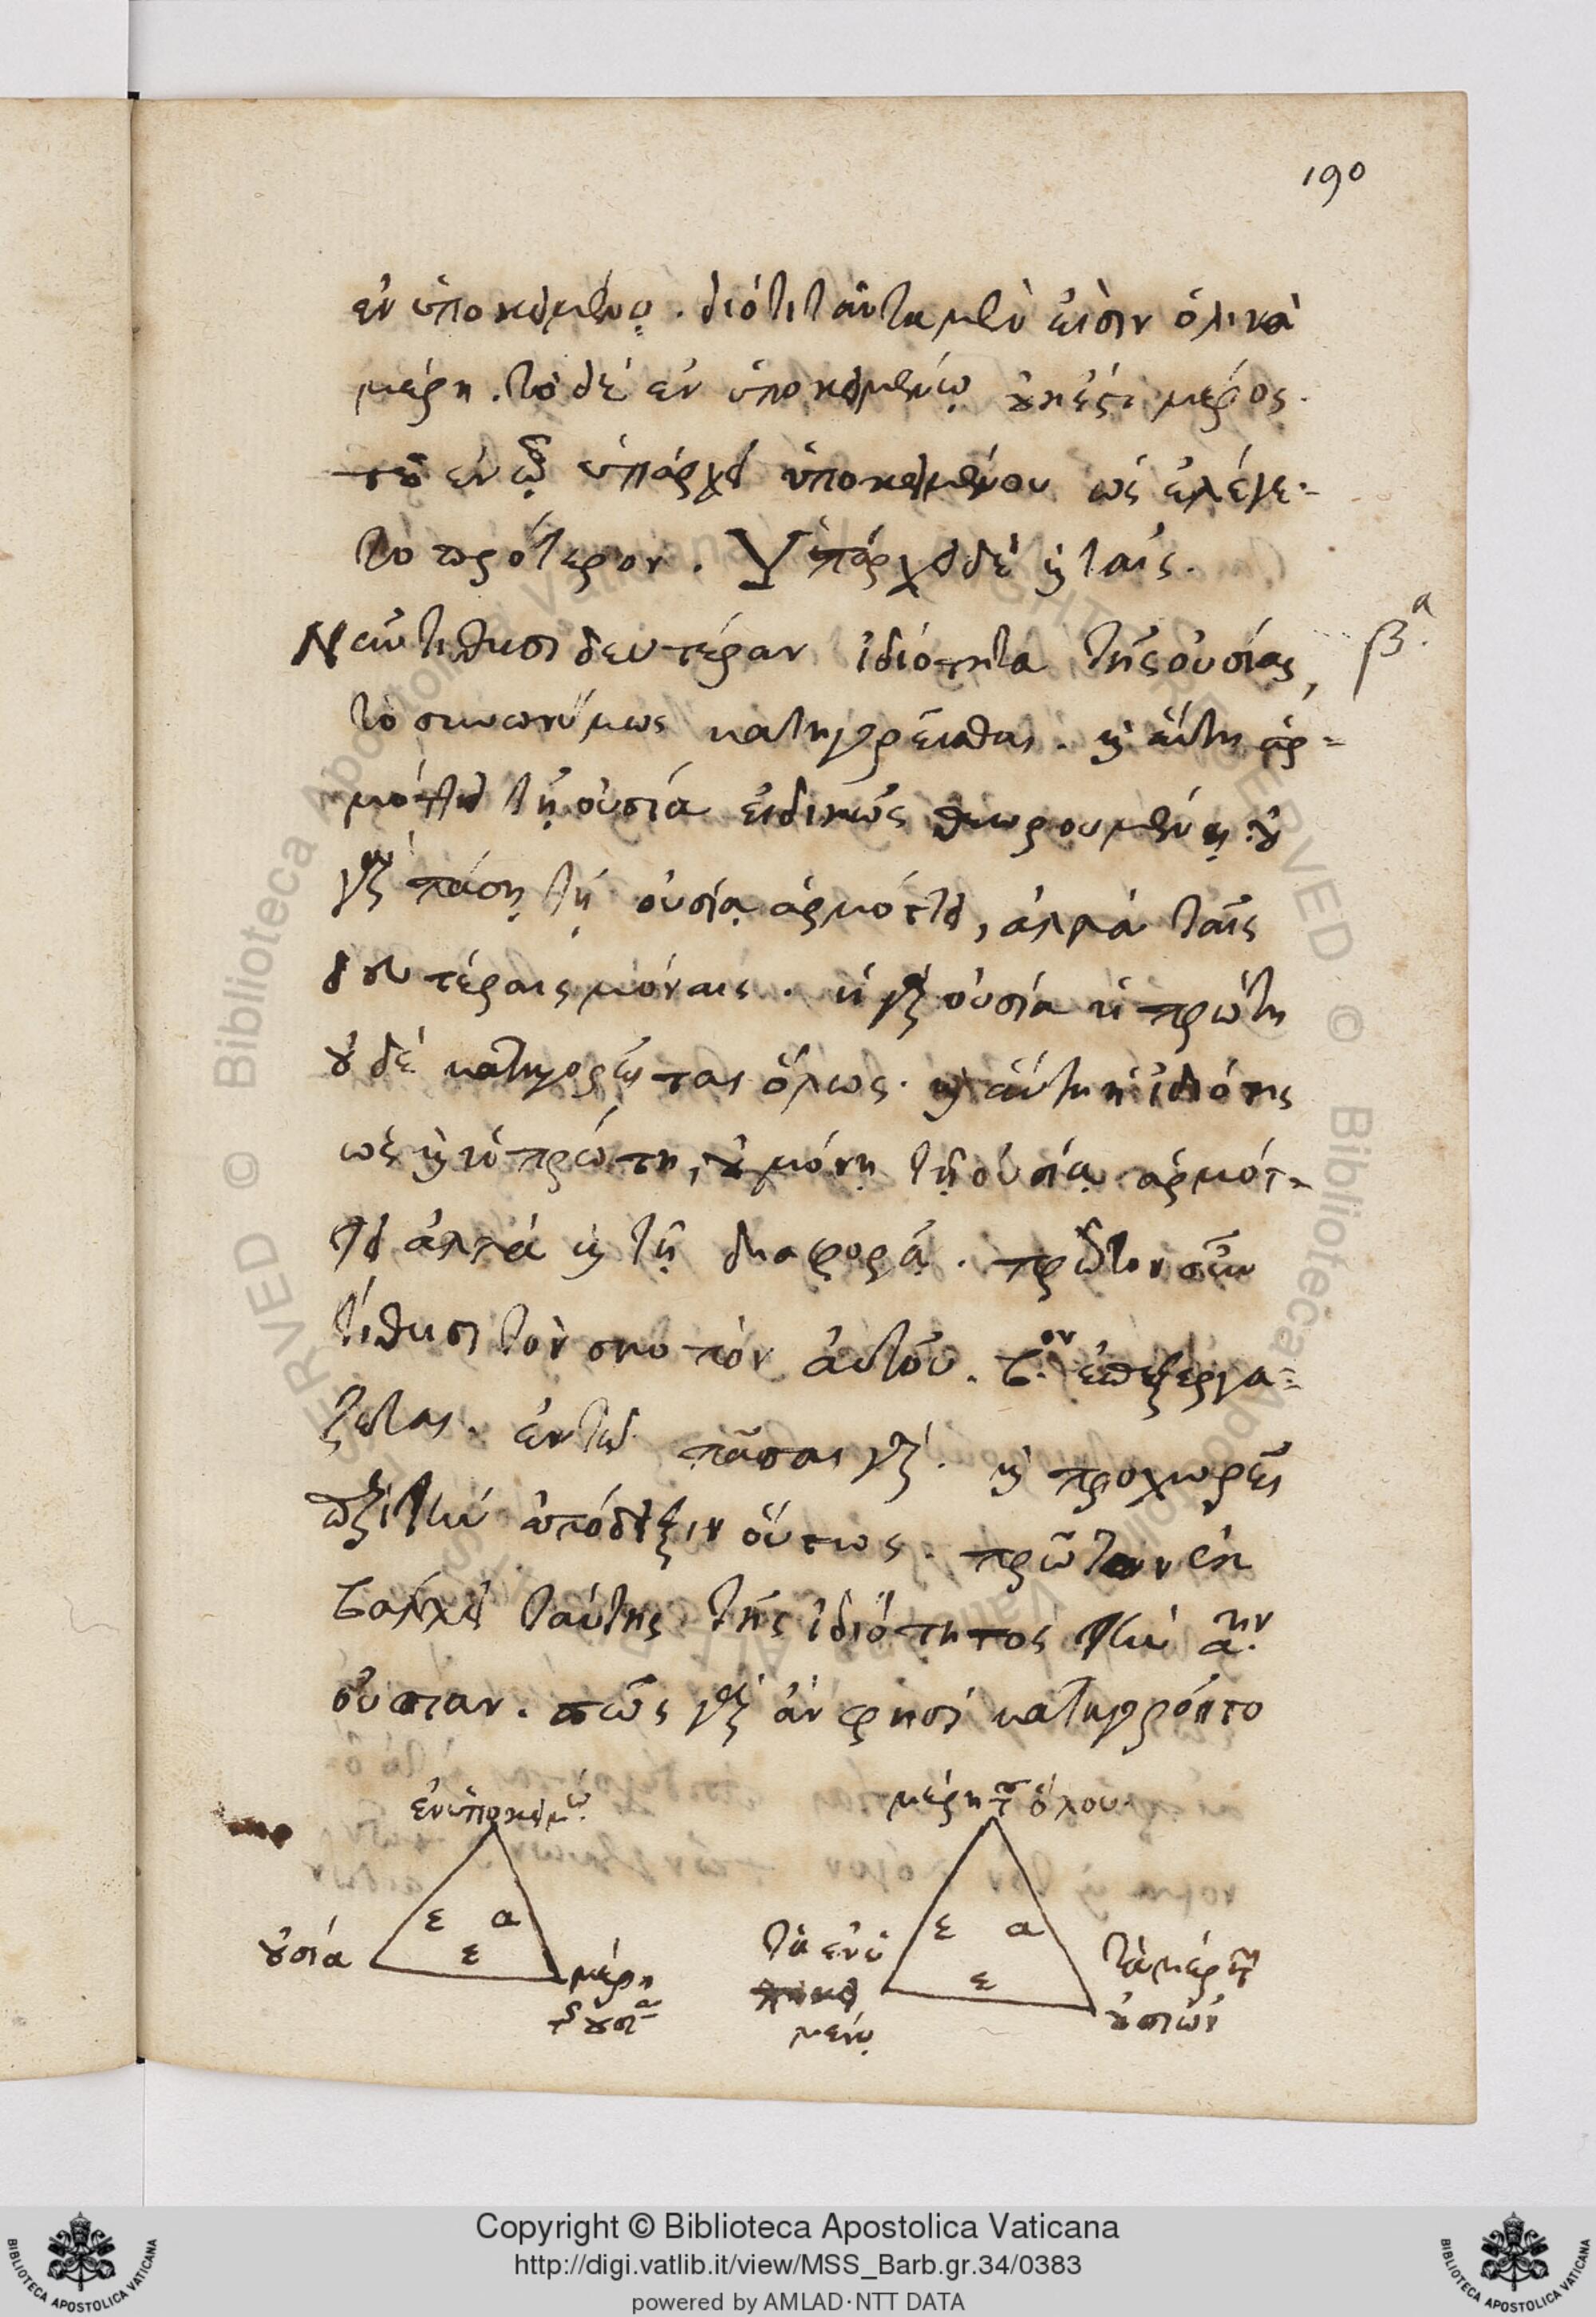 190
ἐν ὑποκειμένῳ. διότι ταῦτα μὲν εἰσὶν ὁλικὰ
μέρη. τὸ δὲ ἐν ὑποκειμένῳ οὐκ ἔστι μέρος
τοῦ ἐν ᾧ ὑπάρχει ὑποκειμένου ὡς ἐλέγε-
το πρότερον. Ὑπάρχει δὲ καὶ ταῖς.
τίθησι δευτέραν ἰδιότητα τῆς οὐσίας,
β.α
τὸ συνωνύμως κατηγορεῖσθαι. καὶ αὕτη ἁρ-
μόττει τῇ οὐσίᾳ εἰδικῶς θεωρουμένῃ. οὐ
γὰρ πάσῃ τῇ οὐσίᾳ ἁρμόττει, ἀλλὰ ταῖς
δευτέραις μόναις. ἡ γὰρ οὐσία ἡ πρώτη
οὐδὲ κατηγορεῖται ὅλως. καὶ αὕτη ἡ ἰδιότης
ὡς καὶ ἡ πρώτη, οὐ μόνῃ τῇ οὐσίᾳ ἁρμότ-
τει ἀλλὰ καὶ τῇ διαφορᾷ. πρῶτον οὖν
τίθησι τὸν σκοπὸν αὐτοῦ. β.ον ἐπεξεργά-
ζεται. ἐν τῷ πᾶσαι γάρ. καὶ προχωρεῖ
περὶ τὴν ἀπόδειξιν οὕτως. πρῶτον ἐκ-
βάλλει ταύτης τῆς ἰδιότητος τὴν α.ην
οὐσίαν. πῶς γὰρ ἄν φησὶ κατηγοροῖτο
ἐν ὑποκειμ.ῳ
ε α
ε
οὐσία
μέρη
τῆς οὐσί.ας
μέρη τοῦ ὅλου.
ε α
ε
τὰ ἐν ὑ
ποκει
μένῳ
τὰ μέρη τῶν
οὐσιῶν
Copyright © Biblioteca Apostolica Vaticana
http://digi.vatlib.it/view/MSS_Barb.gr.34/0383
powered by AMLAD·NTT DATA
BIBLIOTECA APOSTOLICA VATICANA
BIBLIOTECA APOSTOLICA VATICANA